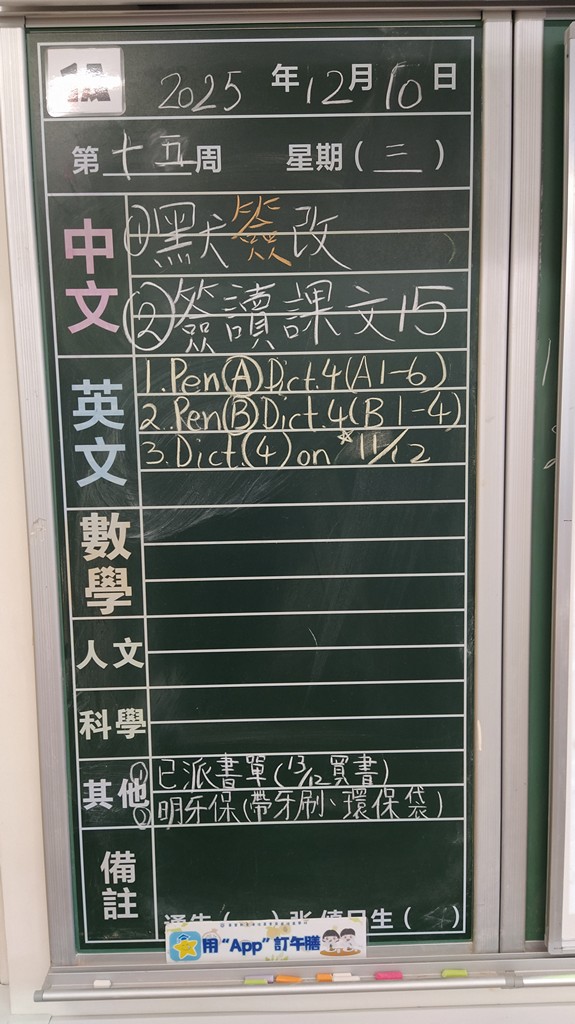 1A
2025 年 12 月 10 日
第 十五 周 星期 ( 三 )
中文
① 默簽改
② 簽讀課文15
英文
1. Pen Ⓐ Dict. 4 (A1-6)
2. Pen Ⓑ Dict. 4 (B1-4)
3. Dict. (4) on *11/12
數學
人文
科學
其他
① 已派書單 (13/12買書)
② 明牙保 (帶牙刷、環保袋)
備註
生 ( )
用 “App” 訂午膳